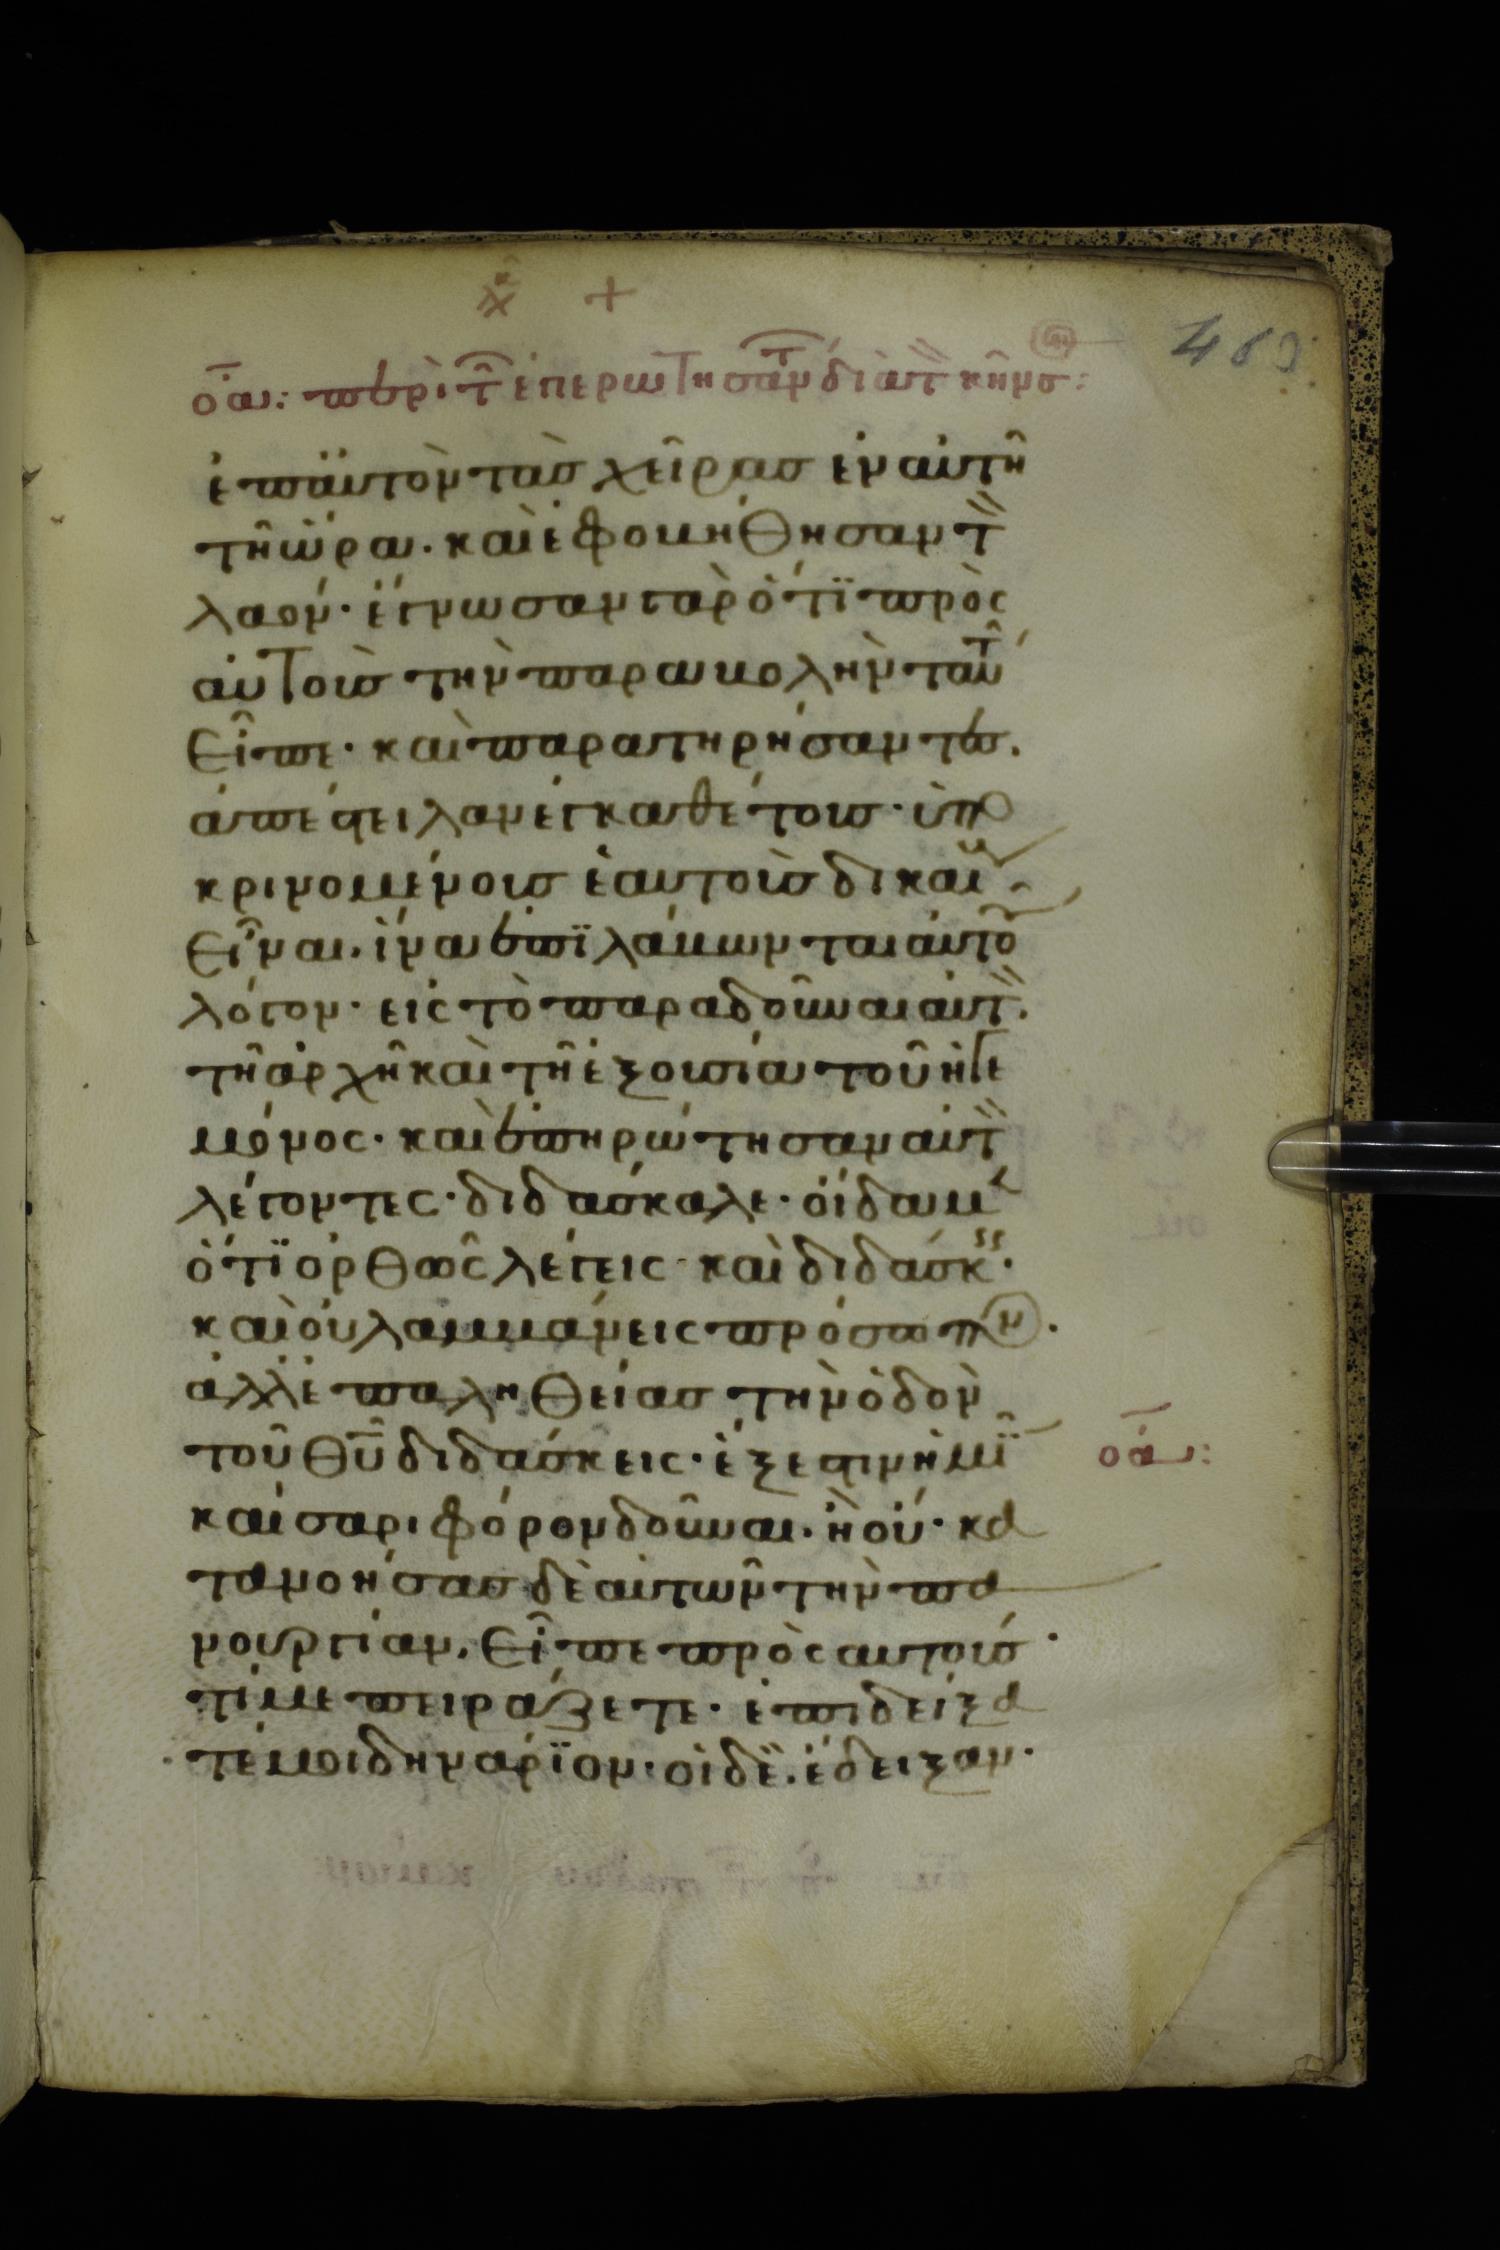 οα: περὶ τῶν ἐπερωτησάντων διὰ τὸν κῆνσον:
ἐπ αὐτὸν τὰς χεῖρας ἐν αὐτῆ
τῆ ὥρα· καὶ ἐφοβήθησαν τὸν
λαόν· ἔγνωσαν γὰρ ὅτϊ πρὸς
αὐτοὺς τὴν παραβολὴν ταύτην
εἶπε· καὶ παρατηρήσαντες.
ἀπέστειλαν ἐγκαθέτους· ὑπο
κρινομένους ἑαυτοὺς δικαίους
εἶναι. ἵνα ἐπϊλάβωνται αὐτοῦ
λόγον· εἰς τὸ παραδοῦναι αὐτὸν.
τῆ ἀρχῆ καὶ τῆ ἐξουσία τοῦ ἡγε
μόνος· καὶ ἐπηρώτησαν αὐτὸν
λέγοντες· διδάσκαλε· οἴδαμεν
ὅτϊ ὀρθῶς λέγεις· καὶ διδάσκεις·
καὶ οὐ λαμβάνεις πρόσωπον.
ἀλλ ἐπ αληθείας τὴν ὁδὸν
τοῦ θῦ διδάσκεις· ἔξεστιν ἡμῖν
καίσαρι φόρον δοῦναι. ἢ οὔ· κα
τανοήσας δὲ αὐτῶν τὴν πα
νουργίαν. εἶπε πρὸς αυτούς·
τί με πειράζετε· ἐπιδείξα
τέ μοι δηνάρϊον· οἱ δὲ. ἔδειξαν·
οα: